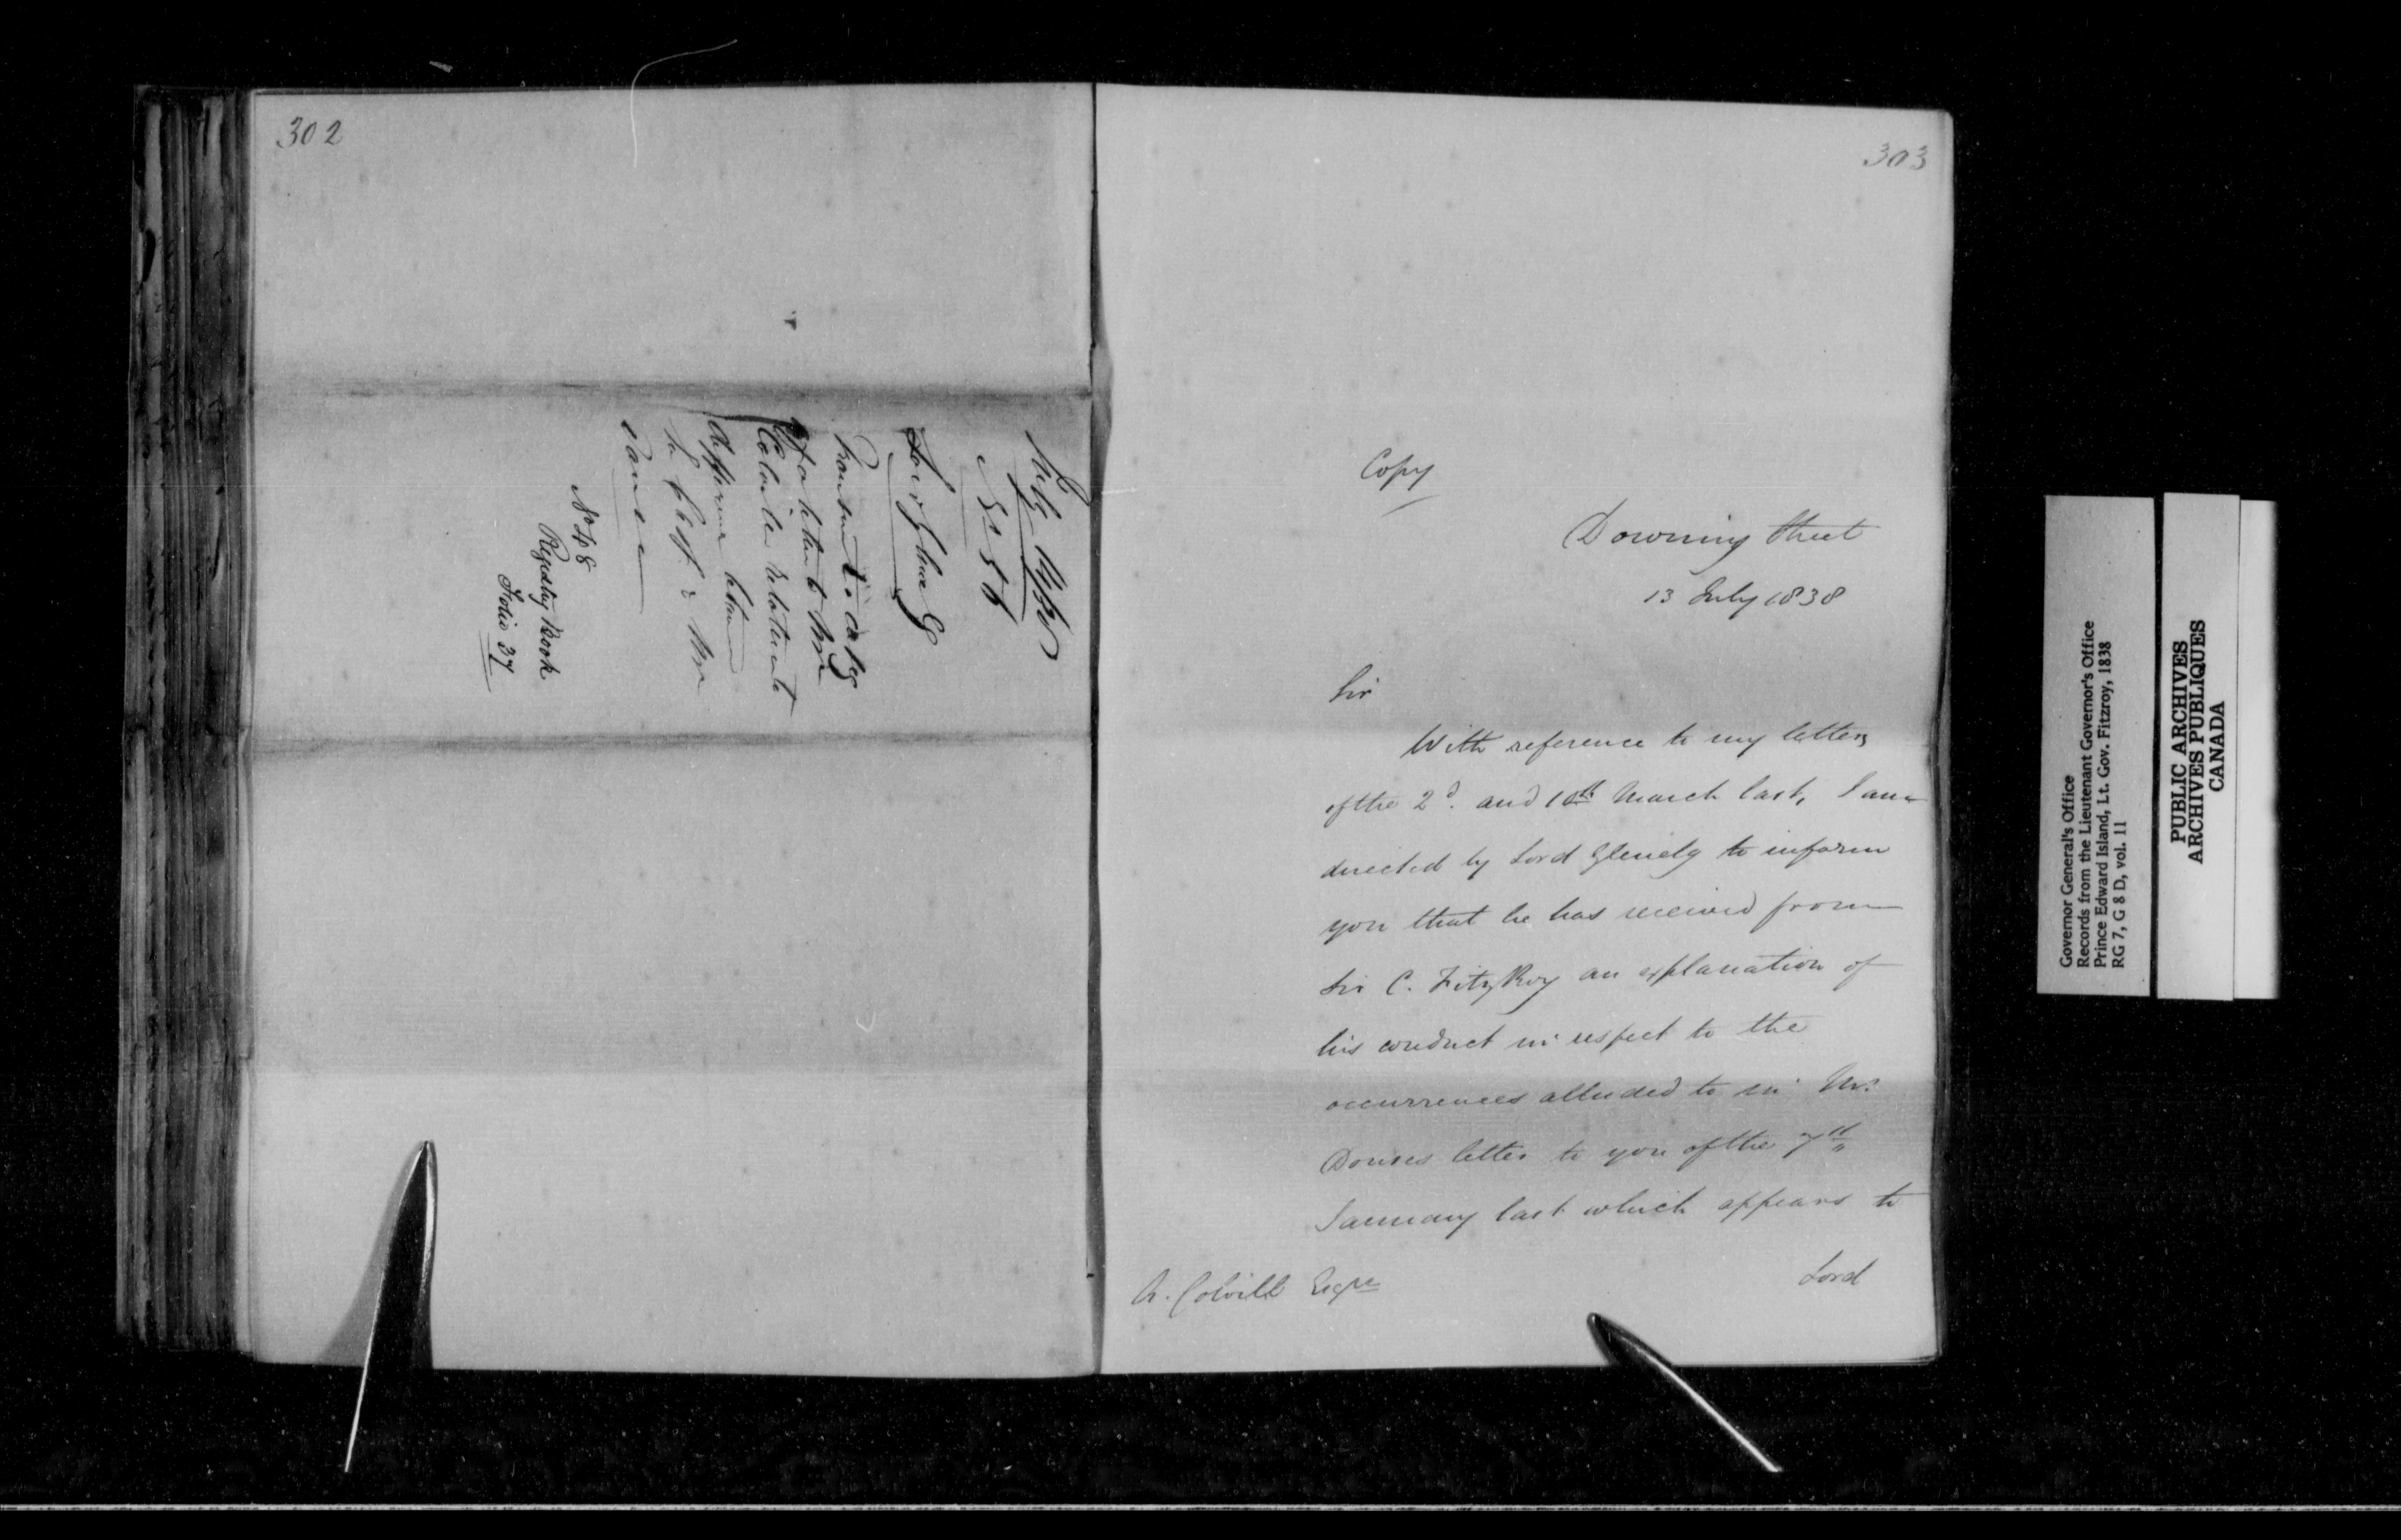 302
July 14/38
No 56
Lord Glenelg
Transmits copy
of a letter to Mr
Colvile relative to
difference between
the Lt. Govr & Mr
Douse
No 48
Registry Book
Folio 37
303
Copy
Downing Street
13 July 1838
Sir
With reference to my letters
of the 2d. and 10th March last, I am
directed by Lord Glenelg to inform
you that he has received from
Sir C. FitzRoy an explanation of
his conduct in respect to the
occurrences alluded to in Mr.
Douses letter to you of the 7th
January last which appears to
Lord
A. Colvill Esqre
Governor General's Office
Records from the Lieutenant Governor's Office
Prince Edward Island, Lt. Gov. Fitzroy, 1838
RG 7, G 8 D, vol. 11
PUBLIC ARCHIVES
ARCHIVES PUBLIQUES
CANADA